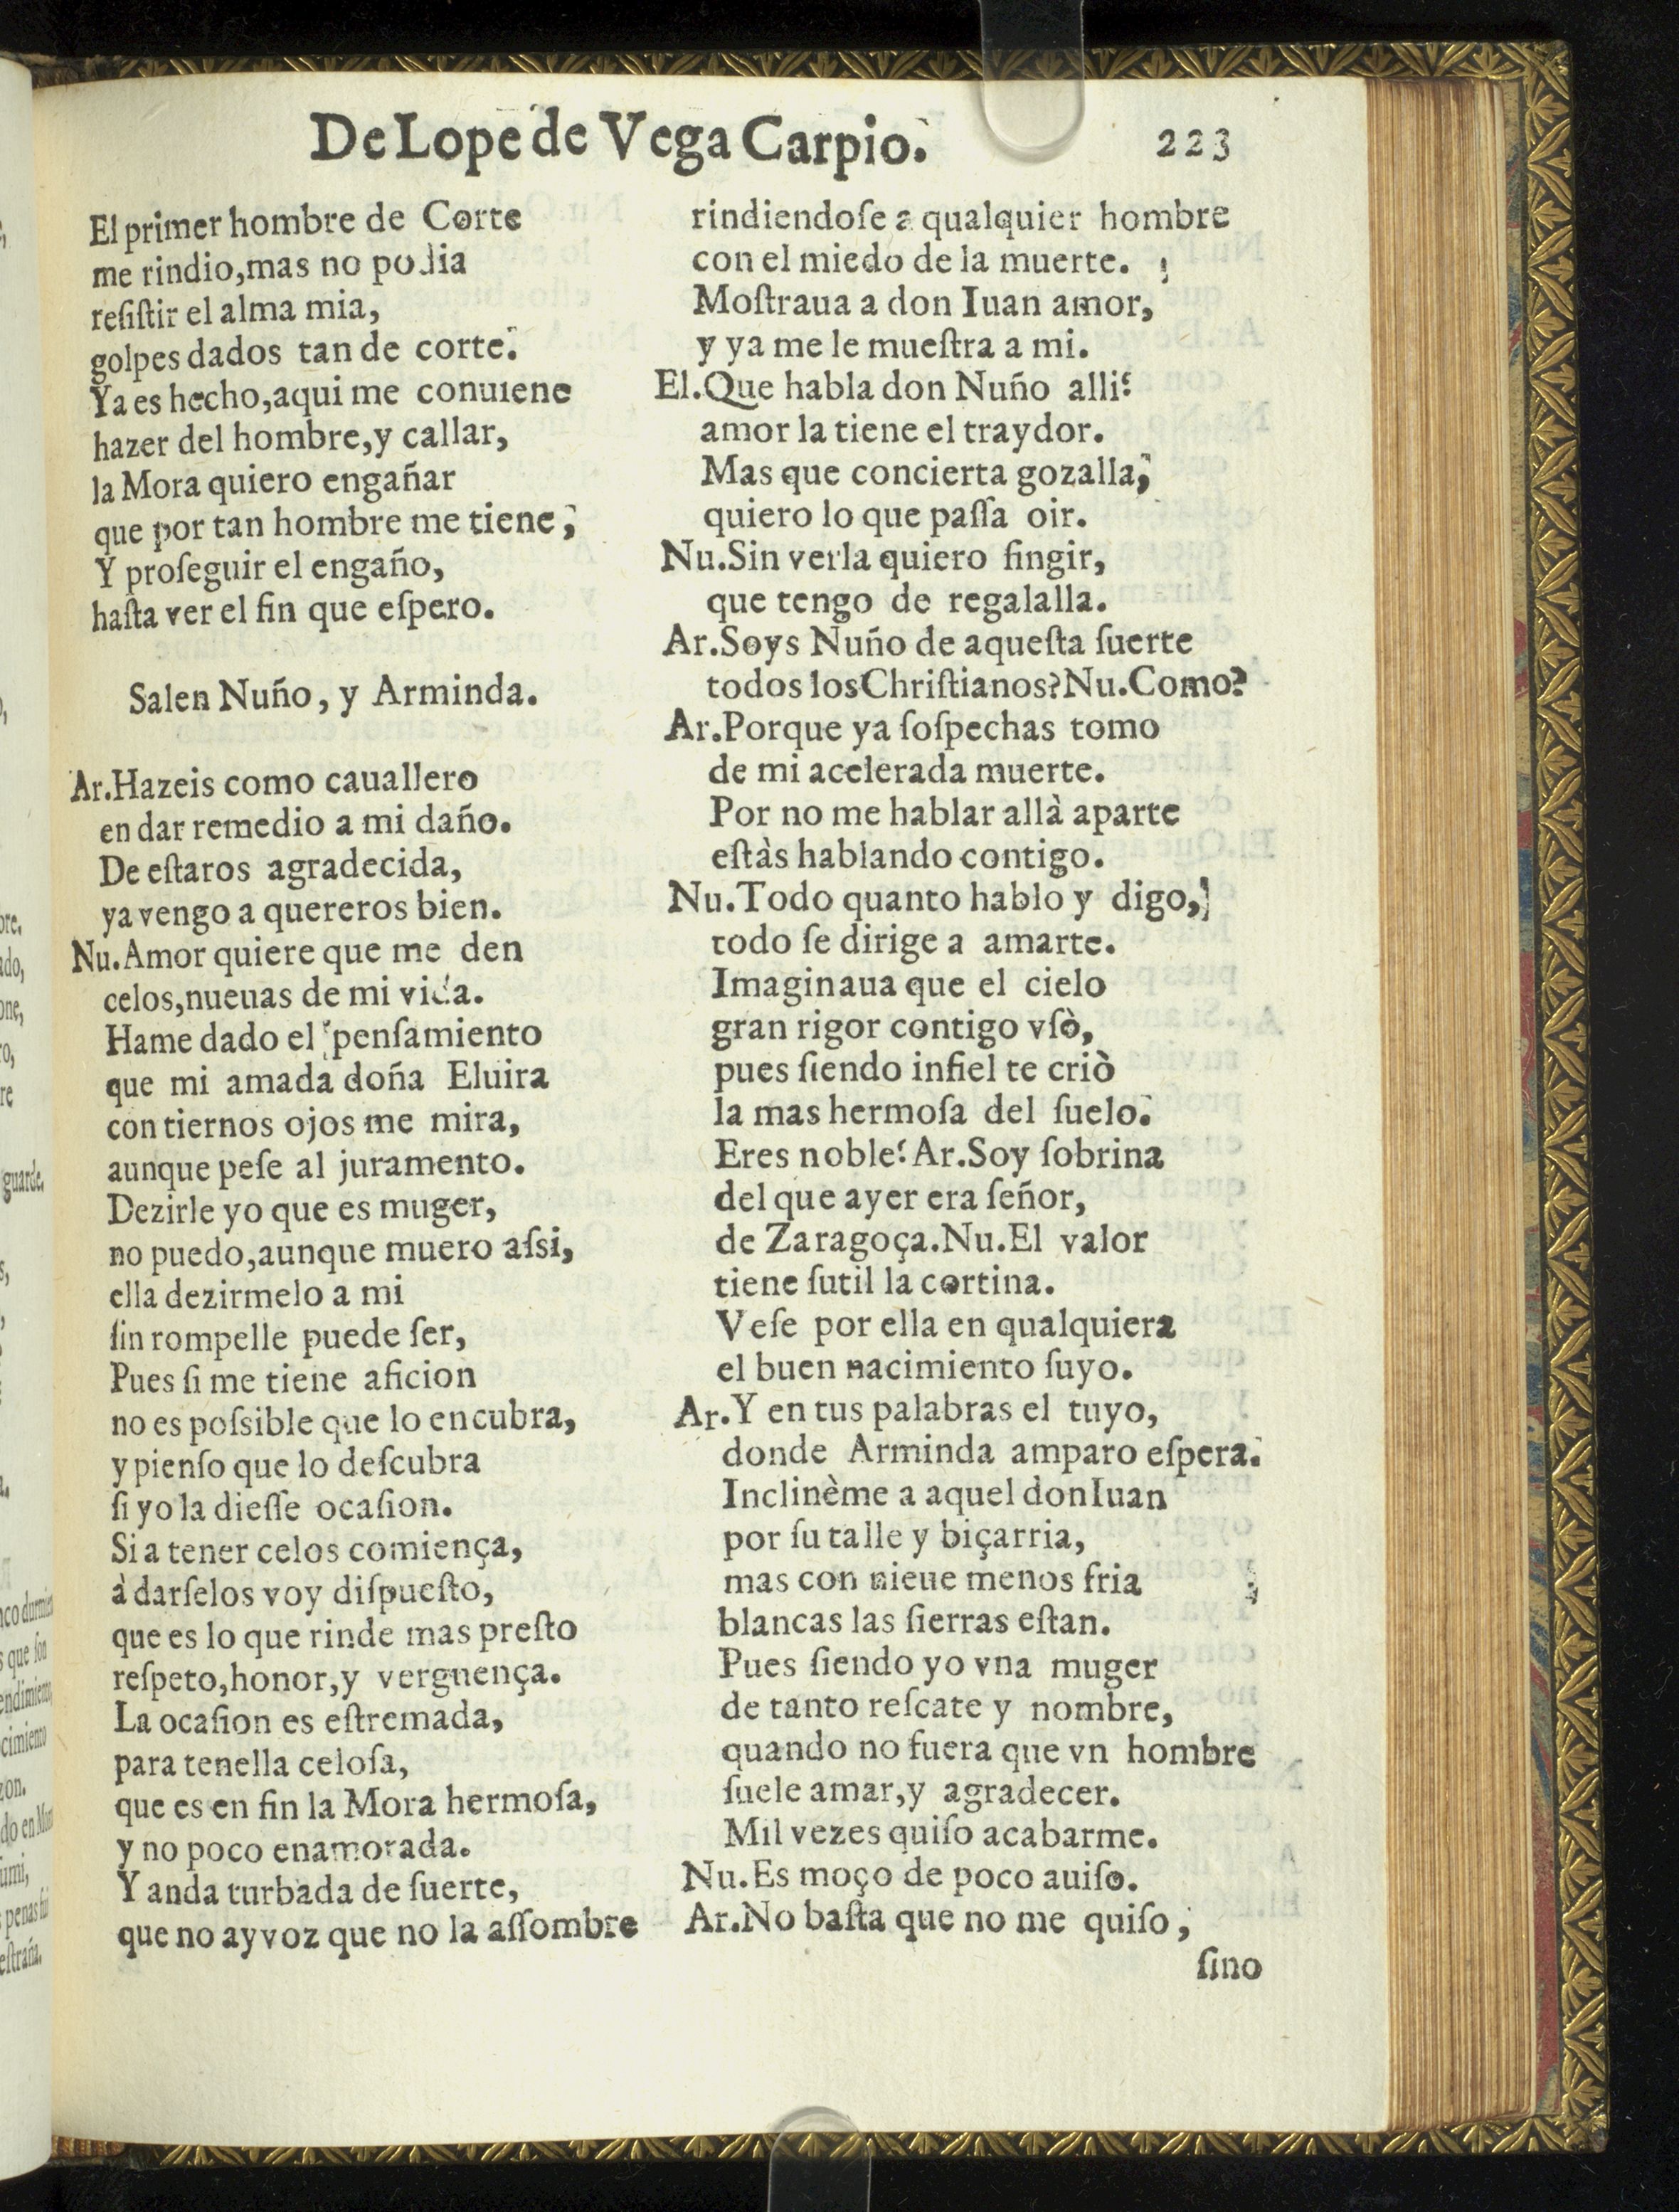 De Lope de Vega Carpio. 223
El primer hombre de Corte
me rindio,mas no podia
resistir el alma mia,
golpes dados tan de corte.
Ya es hecho,aqui me conuiene
hazer del hombre,y callar,
la Mora quiero engañar
que por tan hombre me tiene,
Y proseguir el engaño,
hasta ver el fin que espero.
Salen Nuño, y Arminda.
Ar.Hazeis como cauallero
en dar remedio a mi daño.
De estaros agradecida,
ya vengo a quereros bien.
Nu.Amor quiere que me den
celos,nueuas de mi vida.
Hame dado el pensamiento
que mi amada doña Eluira
con tiernos ojos me mira,
aunque pese al juramento.
Dezirle yo que es muger,
no puedo,aunque muero assi,
ella dezirmelo a mi
sin rompelle puede ser,
Pues si me tiene aficion
no es possible que lo encubra,
y pienso que lo descubra
si yo la diesse ocasion.
Si a tener celos comiença,
à darselos voy dispuesto,
que es lo que rinde mas presto
respeto,honor,y verguença.
La ocasion es estremada,
para tenella celosa,
que es en fin la Mora hermosa,
y no poco enamorada.
Y anda turbada de suerte,
que no ay voz que no la assombre
rindiendose a qualquier hombre
con el miedo de la muerte.
Mostraua a don Iuan amor,
y ya me le muestra a mi.
El.Que habla don Nuño alli?
amor la tiene el traydor.
Mas que concierta gozalla,
quiero lo que passa oir.
Nu.Sin verla quiero fingir,
que tengo de regalalla.
Ar.Soys Nuño de aquesta suerte
todos los Christianos?Nu.Como?
Ar.Porque ya sospechas tomo
de mi acelerada muerte.
Por no me hablar allà aparte
estàs hablando contigo.
Nu.Todo quanto hablo y digo,
todo se dirige a amarte.
Imaginaua que el cielo
gran rigor contigo vsò,
pues siendo infiel te criò
la mas hermosa del suelo.
Eres noble?Ar.Soy sobrina
del que ayer era señor,
de Zaragoça.Nu.El valor
tiene sutil la cortina.
Vese por ella en qualquiera
el buen nacimiento suyo.
Ar.Y en tus palabras el tuyo,
donde Arminda amparo espera.
Inclinème a aquel don Iuan
por su talle y biçarria,
mas con nieue menos fria
blancas las sierras estan.
Pues siendo yo vna muger
de tanto rescate y nombre,
quando no fuera que vn hombre
suele amar,y agradecer.
Mil vezes quiso acabarme.
Nu.Es moço de poco auiso.
Ar.No basta que no me quiso,
sino